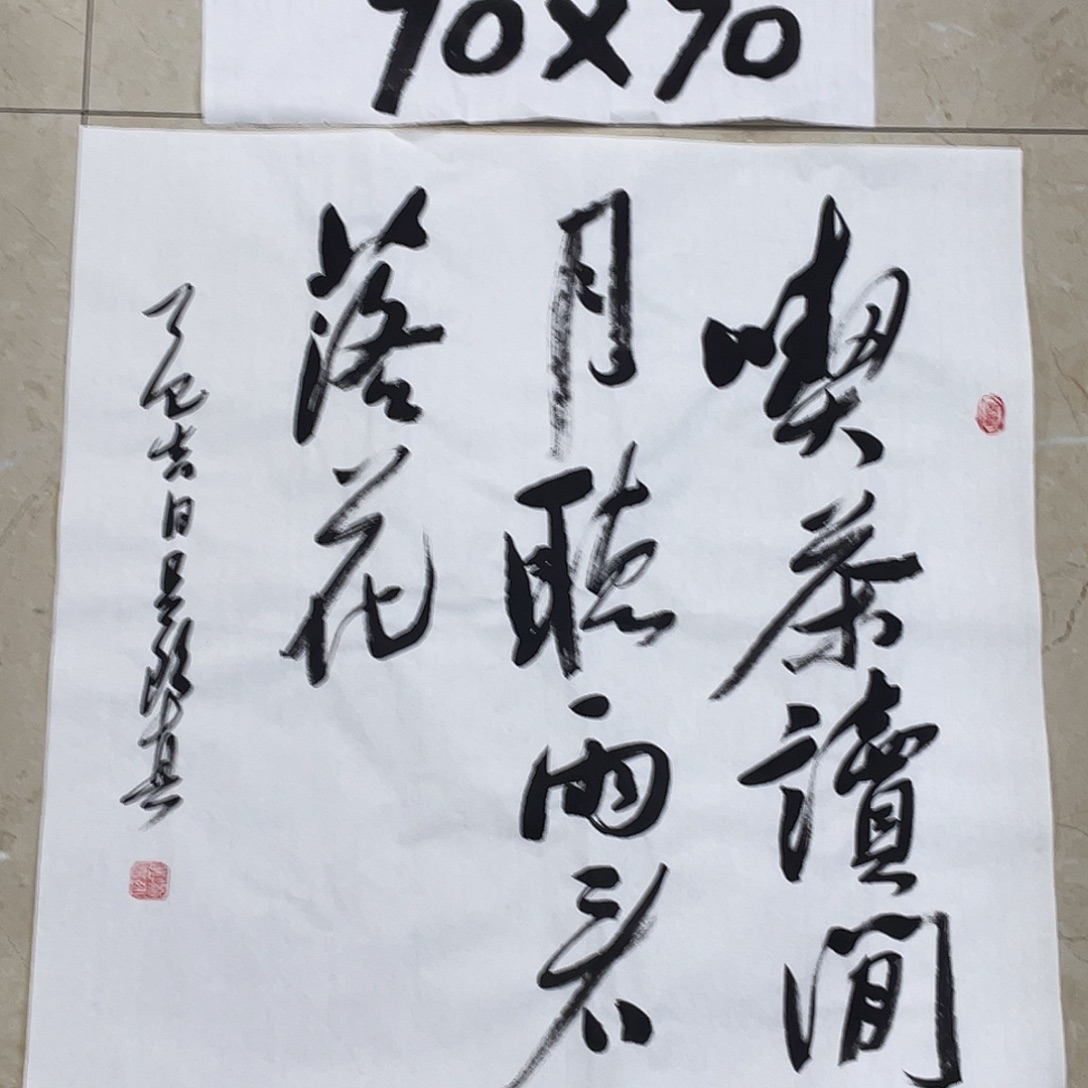 70×70
喫茶讀閒
月聽雨看
落花
吉日